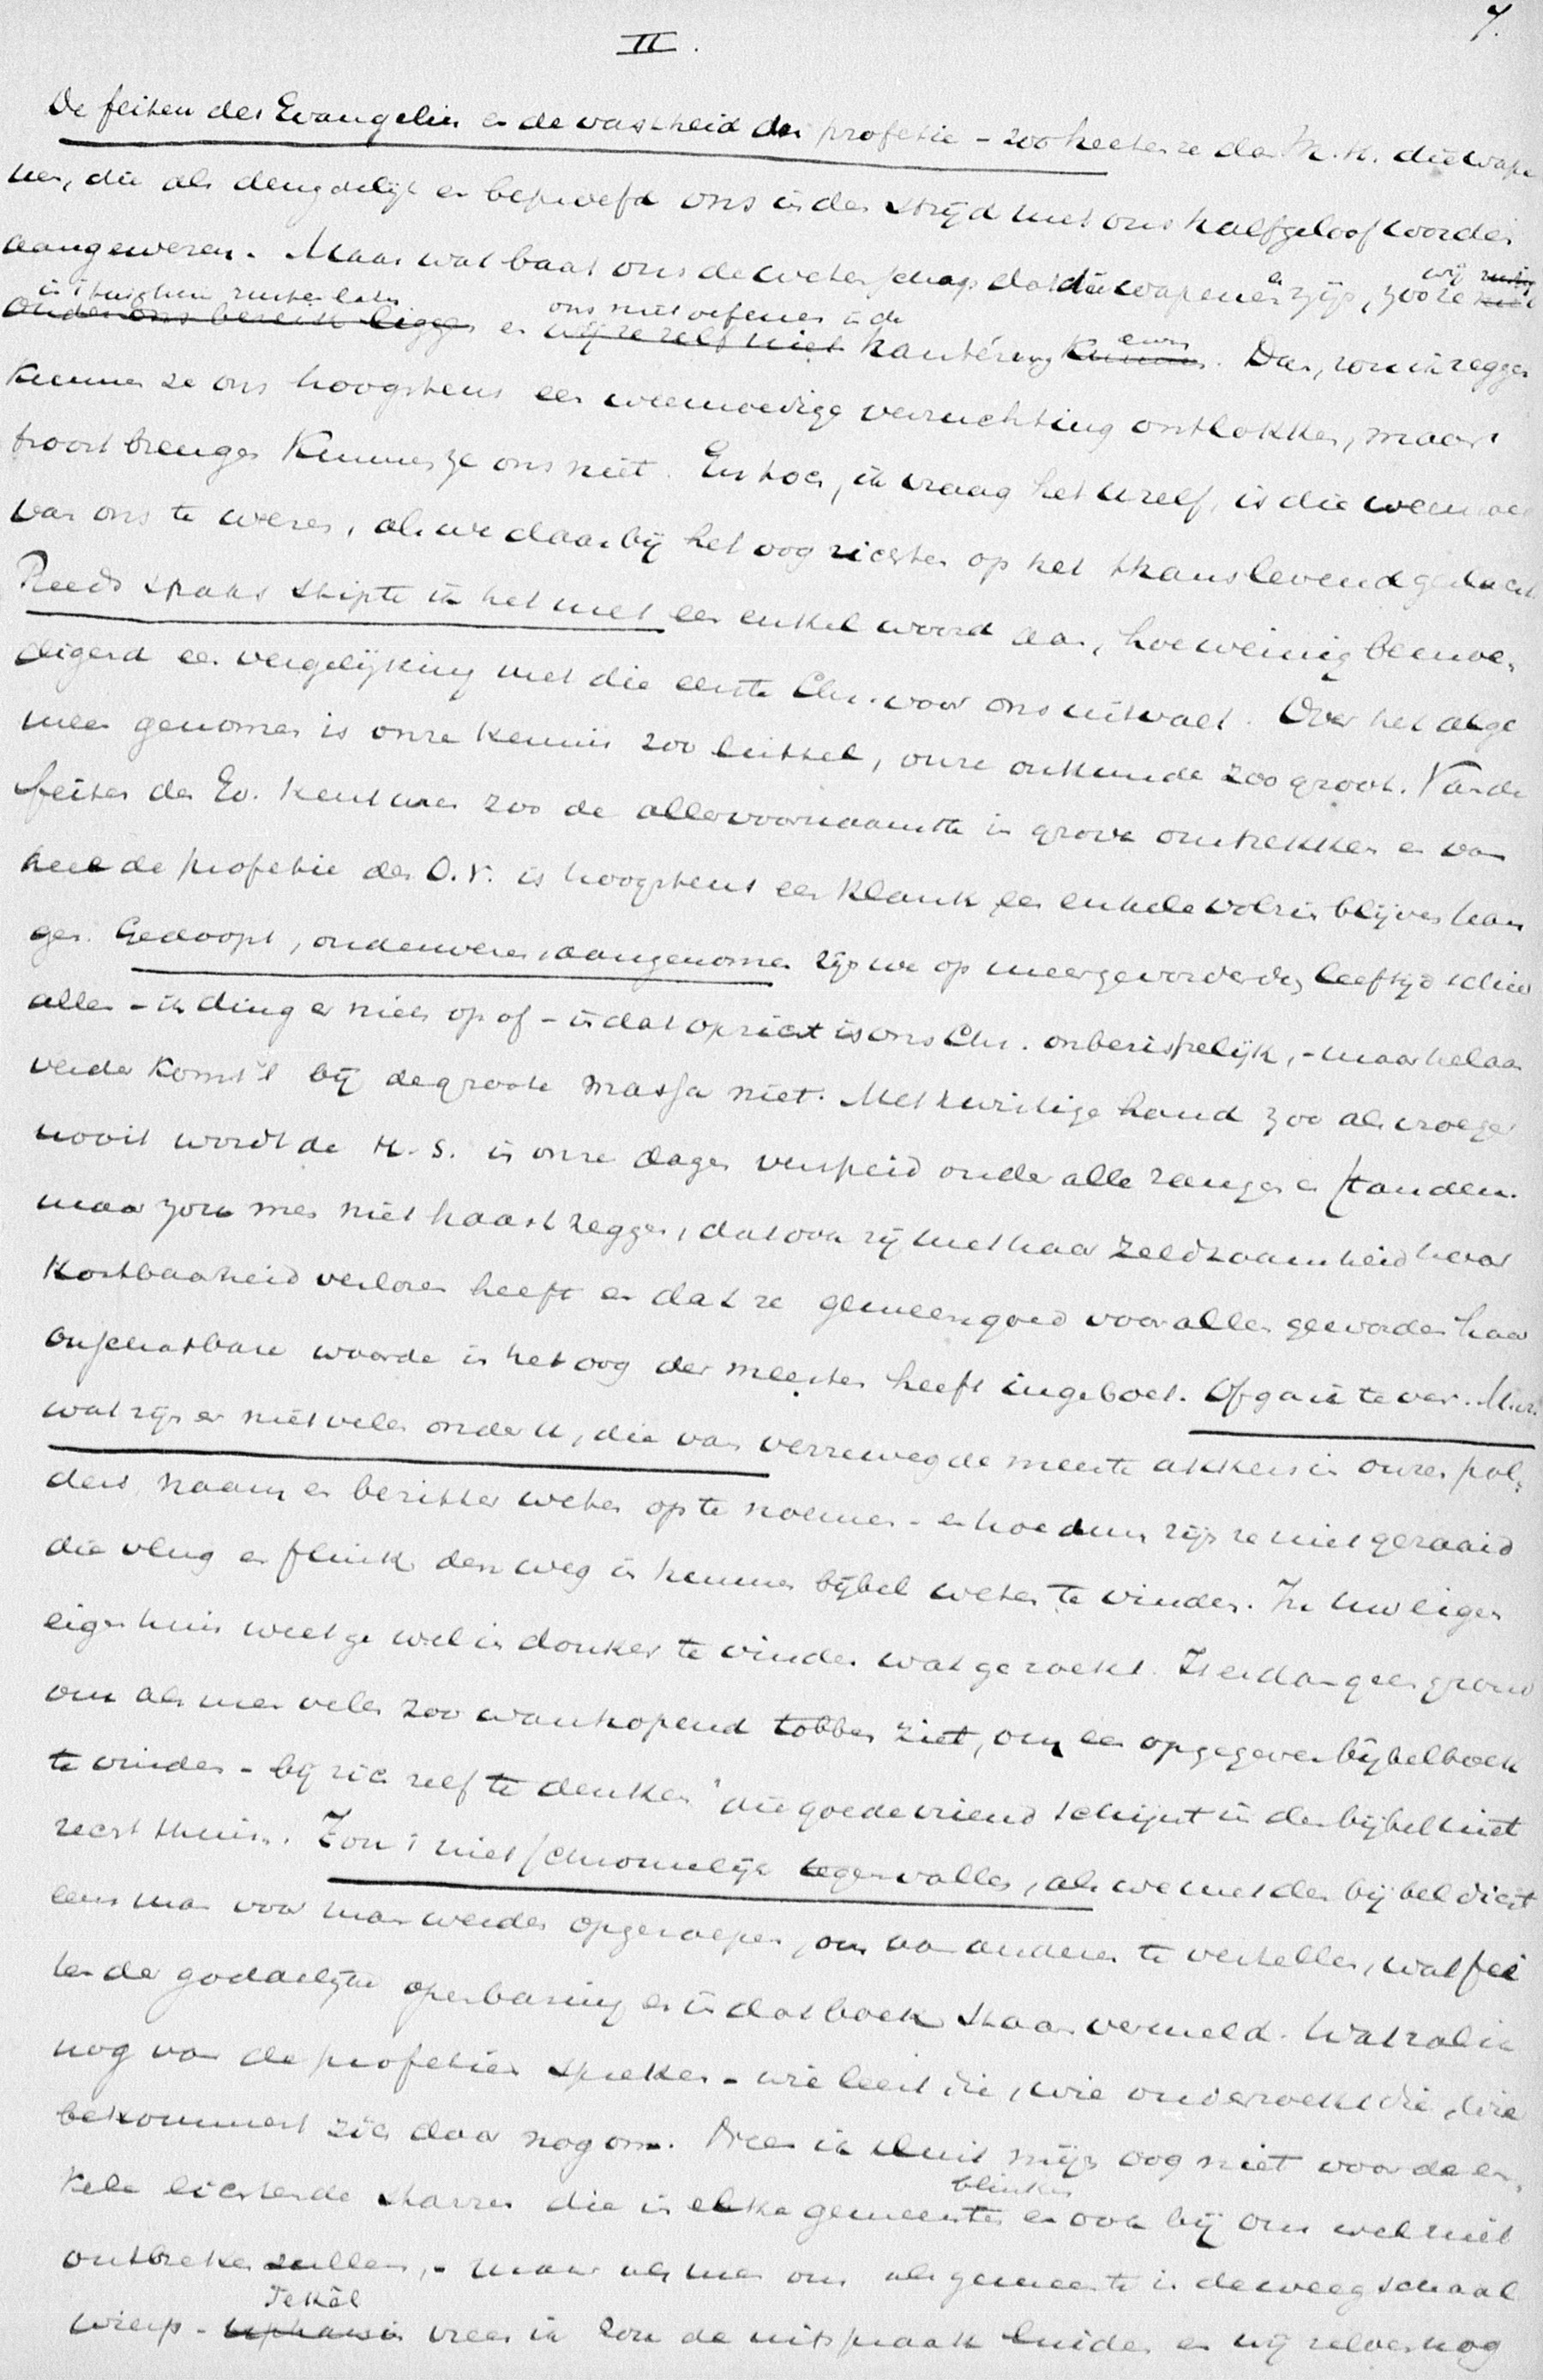 7.
II.
De feiten des Evangelies en de vastheid der profetie - zoo heeten ze dan M. H. die wape
nen, die als deugdelijk en beproefd ons in den strijd met ons halfgeloof worden
aangewezen. Maar wat baat ons de wetenschap dat die wapenen er zijn, zoo wij ze
in 't tuighuis rusten laten en ons niet oefenen in de hanteering ervan. Dan, zou ik zeggen
kunnen ze ons hoogstens een weemoedige verzuchting ontlokken, maar
troost brengen kunnen ze ons niet. En toch, ik vraag het u zelf, is die weemoed
van ons te weren, als we daarbij het oog richten op het thans levend geslacht.
Reeds straks stipte ik het met een enkel woord aan, hoe weinig bemoe-
digend een vergelijking met die eerste Chr. voor ons uitvalt. Over het alge
meen genomen is onze kennis zoo luttel, onze onkunde zoo groot. Van de
feiten des Ev. kent men zoo de allervoornaamste in grove omtrekken en van
heel de profetie des O.V. is hoogstens een klank een enkele volzin blijven han
gen. Gedoopt, onderwezen, aangenomen zijn we op meergevorderden leeftijd schier
allen - ik ding er niets op af - in dat opzicht is ons Chr. onberispelijk, - maar helaas
verder komt 't bij de groote massa niet. Met kwistige hand zoo als vroeger
nooit wordt de H.S. in onze dagen verspreid onder alle rangen en standen.
maar zou men niet haast zeggen, dat ook zij met haar zeldzaamheid haar
kostbaarheid verloren heeft en dat ze gemeengoed voor allen geworden haar
onschatbare waarde in het oog der meesten heeft ingeboet. Of ga ik te ver. M.
wat zijn er niet velen onder u, die van verreweg de meeste akkers in onze pol-
ders, naam en bezitter weten op te noemen - en hoe dun zijn ze niet gezaaid
die vlug en flink den weg in hunnen bijbel weten te vinden. In uw eigen
eigen huis weet ge wel in donker te vinden wat ge zoekt. Is er dan geen grond
om als men velen zoo wanhopend tobben ziet, om een opgegeven bijbelboek
te vinden - bij zich zelf te denken "die goede vriend schijnt in den bijbel niet
recht thuis". Zou 't niet schromelijk tegenvallen, als we met den bijbel dicht
eens man voor man werden opgeroepen, om aan anderen te vertellen, wat fei
ten der goddelijke openbaring er in dat boek staan vermeld. Wat zal ik
nog van de profetieën spreken - wie leest die, wie onderzoekt die, wie
bekommert zich daar nog om. Neen ik sluit mijn oog niet voor de en-
kele lichtende starren die in elke gemeente blinken en ook bij ons wel niet
ontbreken zullen, - maar als men ons als gemeente in de weegschaal
wierp - Tekél vrees ik zou de uitspraak luiden en wij zelven nog